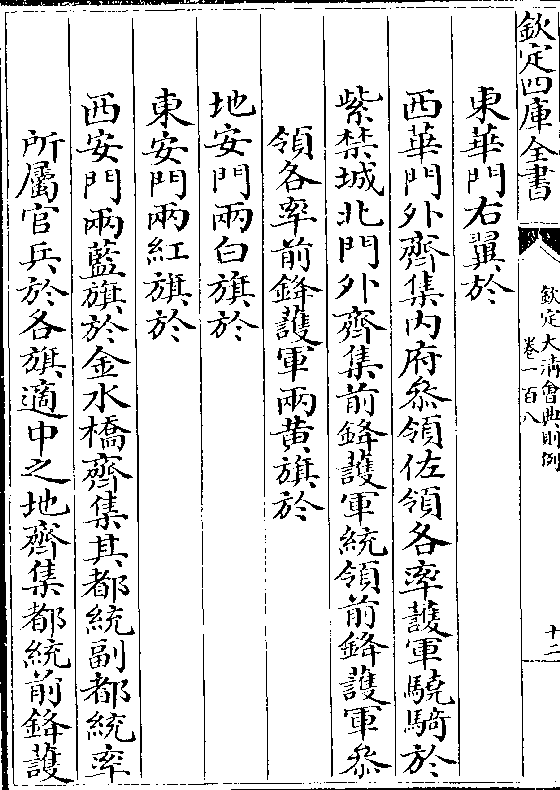 欽定四庫全書
欽定大清會典則例
卷一百八
十二
東華門右翼於
西華門外齊集内府叅領佐領各率護軍驍騎於
紫禁城北門外齊集前鋒護軍統領前鋒護軍叅
領各率前鋒護軍兩黄旗於
地安門兩白旗於
東安門兩紅旗於
西安門兩藍旗於金水橋齊集其都統副都統率
所屬官兵於各旗適中之地齊集都統前鋒護